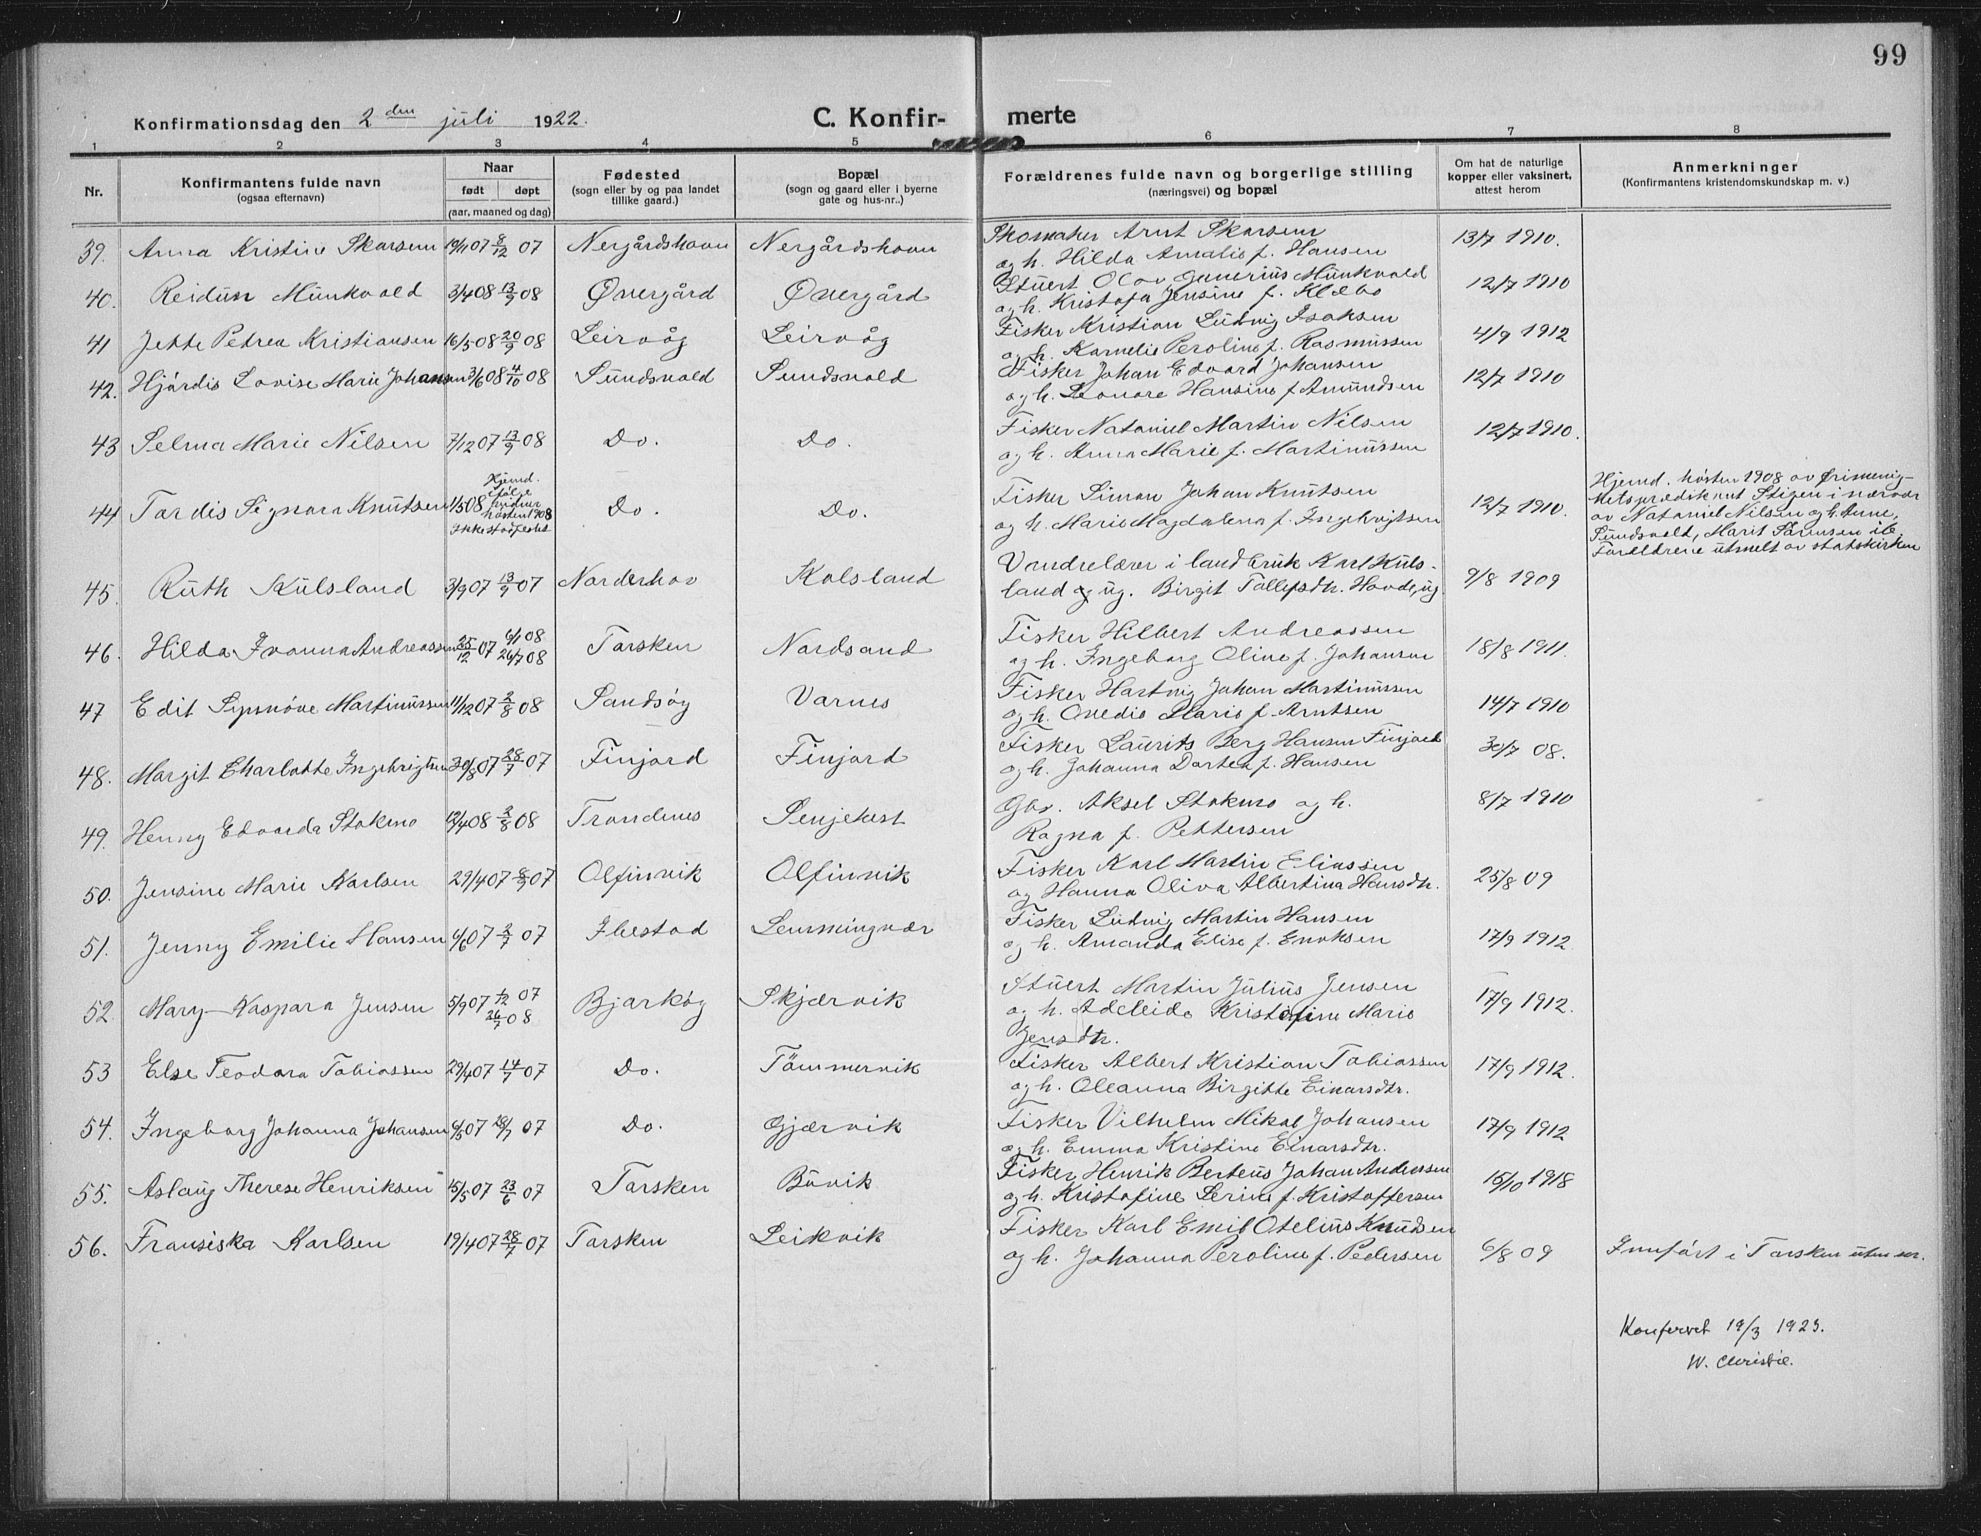 99
Konfirmationsdag den 2den juli 1922.
C. Konfir- merte
1 2 3 4 5 6 7 8
Nr.
Konfirmantens fulde navn
(ogsaa efternavn)
Naar
født døpt
(aar, maaned og dag)
Fødested
(sogn eller by og paa landet
tillike gaard.)
Bopæl
(sogn og gaard eller i byerne
gate og hus-nr..)
Forældrenes fulde navn og borgerlige stilling
(næringsvei) og bopæl
Om hat de naturlige
kopper eller vaksinert,
attest herom
Anmerkninger
(Konfirmantens kristendomskundskap m. v.)
39. Anna Kristine Skarsem 19/11 07 8/12 07 Nergårdshavn Nergårdshavn Skomaker Arnt Skarsem 13/7 1910.
og h. Hilda Amalie f. Hansen
40. Reidun Munkvold 3/4 08 13/9 08 Øvergård Øvergård Stuert Olav Munkvold 12/7 1910
og h. Kristofa Jensine f. Klæbo
41 Jette Petrea Kristiansen 16/5 08 20/9 08 Leirvåg Leirvåg Fisker Kristian Ludvig Isaksen 4/9 1912
og h. Kornelie Peroline f. Rasmussen
42. Hjørdis Lovise Marie Johansen 3/6 08 4/10 08 Sundsvold Sundsvold Fisker Johan Edvard Johansen 12/7 1910
og h. Leonore Hansine f. Amundsen
43 Selma Marie Nilsen 7/12 07 13/9 08 Do. Do. Fisker Nataniel Martin Nilsen 12/7 1910.
og h. Anna Marie f. Martinussen
44 Tordis Signora Knutsen 1/5 08 Hjemd.
høsten 1908
Do. Do. Fisker Simon Johan Knutsen 12/7 1910.
og h. Marie Magdalena f. Ingebrigtsen
Hjemd. høsten 1908 av Frimenig-
hetsprædikant Stigen i nærvær
av Nataniel Nilsen og h. Anne,
Sundsvold, Marit Sørensen ib.
Forældrene utmelt av statskirken
45. Ruth Kulsland 3/9 07 13/9 07 Norderhov Kolsland Vandrelærer i landbruk Karl Kuls- 9/8 1909
land og ug. Birgit Tollefsdtr. Hovde, ug.
46. Hilda Ivanna Andreassen 25/12 07 6/1 08 26/7 08 Torsken Nordsand Fisker Hilbert Andreassen 18/8 1911.
og h. Ingeborg Oline f. Johansen
47 Edit Synnøve Martinussen 11/12 07 2/8 08 Sandsøy Varnes Fisker Hartvig Johan Martinussen 14/7 1910
og h. Ovedie Marie f. Arntsen
48. Margit Charlotte Ingebrigtsen 30/8 07 28/9 07 Finjord Finjord Fisker Laurits Berg Hansen Finjord 30/7 08.
og h. Johanna Dortea f. Hansen
49. Henny Edvarda Stokmo 12/4 08 2/8 08 Trondenes Senjehest Gbr. Aksel Stokmo og h. 8/7 1910
Ragna f. Pettersen
50. Jensine Marie Karlsen 29/4 07 8/9 07 Olfinvik Olfinvik Fisker Karl Martin Eliassen 25/8 09
og Hanna Oliva Albertina Hansdtr.
51. Jenny Emilie Hansen 4/6 07 2/7 07 Ibestad Lemmingvær Fisker Ludvig Martin Hansen 17/9 1912.
og h. Amanda Elise f. Enoksen
52. Mary Kaspara Jensen 5/9 07 1/12 07 26/7 08 Bjarkøy Skjærvik Stuert Martin Julius Jensen 17/9 1912.
og h. Adeleide Kristofine Marie
Jensdtr.
53 Else Teodora Tobiassen 29/4 07 14/7 07 Do. Tømmervik Fisker Albert Kristian Tobiassen 17/9 1912.
og h. Oleanna Birgitte Einarsdtr.
54. Ingeborg Johanna Johansen 6/5 07 28/7 07 Do. Gjærvik Fisker Vilhelm Mikal Johansen 17/9 1912
og h. Emma Kristine Einarsdtr.
55. Aslaug Therese Henriksen 15/5 07 23/6 07 Torsken Bøvik Fisker Henrik Berteus Johan Andersen 15/10 1918
og h. Kristofine Serine f. Kristoffersen
56. Fransiska Karlsen 19/4 07 28/7 07 Torsken Leikvik Fisker Karl Emil Otelius Knudsen
og h. Johanna Peroline f. Pedersen 6/8 09 Innført i Torsken uten nr.
Konferert 19/3 1923.
W. Christie.